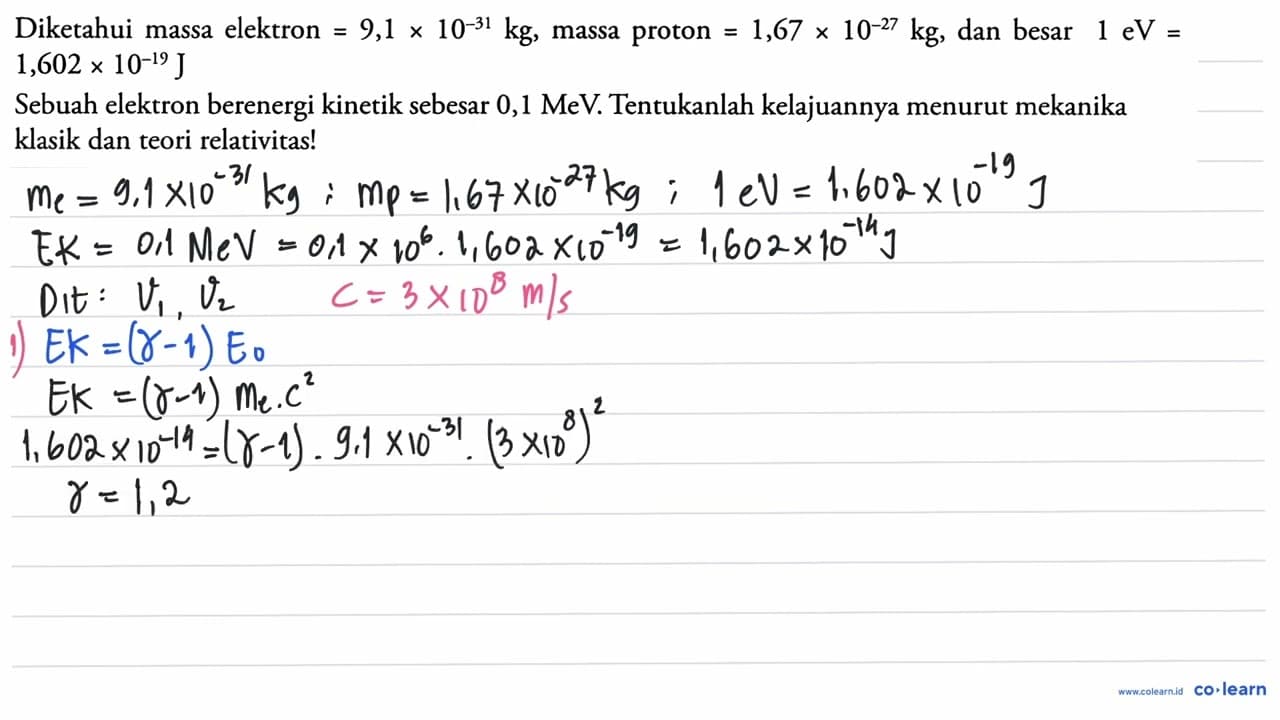 Diketahui massa elektron = 9,1 × 10⁻³¹ kg, massa proton = 1,67 × 10⁻²⁷ kg, dan besar 1 eV =
1,602 × 10⁻¹⁹ J
Sebuah elektron berenergi kinetik sebesar 0,1 MeV. Tentukanlah kelajuannya menurut mekanika
klasik dan teori relativitas!
me = 9,1 × 10⁻³¹ kg ; mp = 1,67 × 10⁻²⁷ kg ; 1 eV = 1,602 × 10⁻¹⁹ J
EK = 0,1 MeV = 0,1 × 10⁶ . 1,602 × 10⁻¹⁹ = 1,602 × 10⁻¹⁴ J
Dit : V₁, V₂ C = 3 × 10⁸ m/s
1) EK = (γ-1) E₀
EK = (γ-1) me.c²
1,602 × 10⁻¹⁴ = (γ-1) . 9,1 × 10⁻³¹ . (3 × 10⁸)²
γ = 1,2
www.colearn.id co·learn